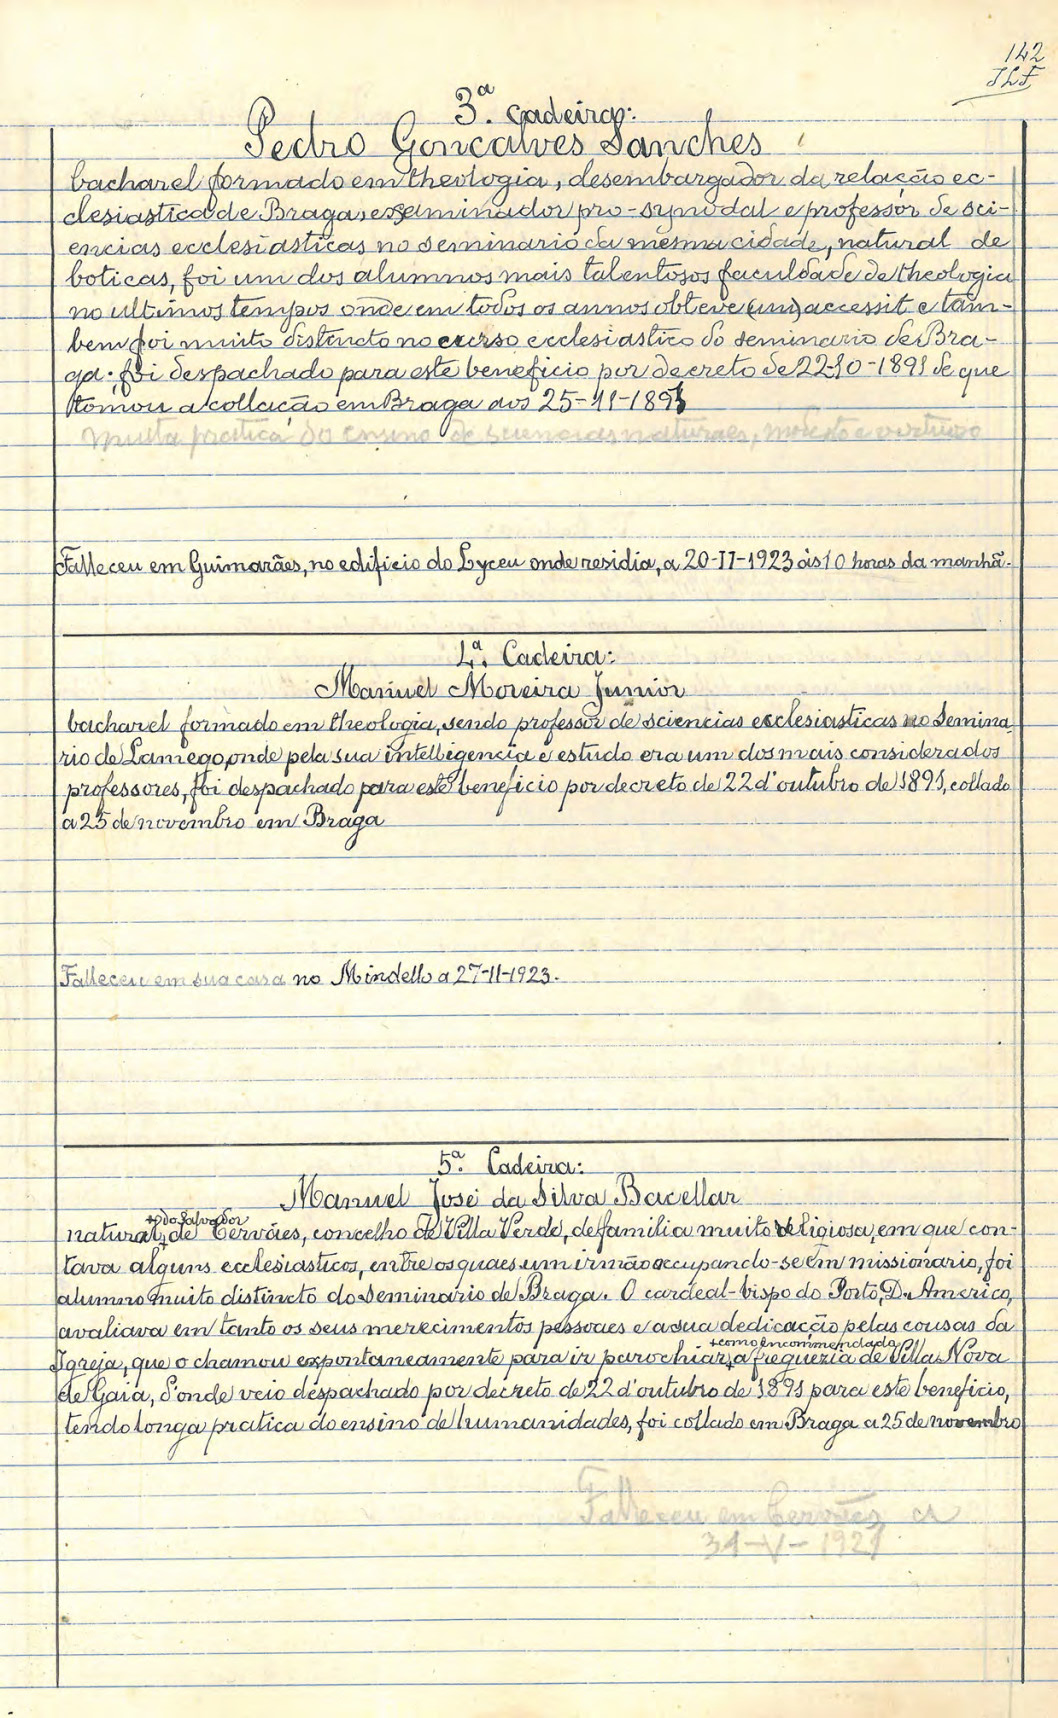 142
JLF
3ª. cadeira:
Pedro Gonçalves Sanches
bacharel formado em theologia, desembargador da relação ec-
clesiastica de Braga, examinador pro-synodal e professor de sci-
encias ecclesiasticas no seminario da mesma cidade, natural de
boticas, foi um dos alumnos mais talentosos faculdade de theologia
no ultimos tempos onde em todos os annos obteve (um) accessit e tam-
bem foi muito distincto no curso ecclesiastico do seminario de Bra-
ga; foi despachado para este beneficio por decreto de 22-10-1891 de que
tomou a collação em Braga aos 25-11-1891
Muita pratica do ensino de sciencias naturaes, modesto e virtuoso
Falleceu em Guimarães, no edificio do Lyceu onde residia, a 20-II-1923 ás 10 horas da manhã.
4ª. Cadeira:
Manuel Moreira Junior
bacharel formado em theologia, sendo professor de sciencias ecclesiasticas no Semina-
rio de Lamego, onde pela sua intelligencia e estudo era um dos mais considerados
professores, foi despachado para este beneficio por decreto de 22 d'outubro de 1891, collado
a 25 de novembro em Braga
Falleceu em sua casa no Mindello a 27-11-1923.
5ª. Cadeira:
Manuel José da Silva Bacellar
+ do Salvador
natural + de Cervães, concelho de Villa Verde, de familia muito religiosa, em que con-
tava alguns ecclesiasticos, entre os quaes um irmão occupando-se em missionario, foi
alumno muito distincto do Seminario de Braga. O cardeal-bispo do Porto, D. Americo,
avaliava em tanto os seus merecimentos pessoaes e a sua dedicação pelas cousas da
+ como encommendado
Igreja, que o chamou expontaneamente para ir parochiar + a freguezia de Villa Nova
de Gaia, d'onde veio despachado por decreto de 22 d'outubro de 1891 para este beneficio,
tendo longa pratica do ensino de humanidades, foi collado em Braga a 25 de novembro
Falleceu em Cervães a
31-V-1921